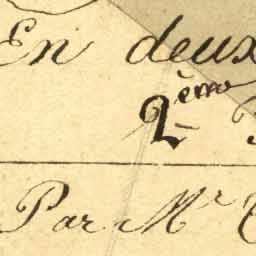 En deux
2ème
Par Mr